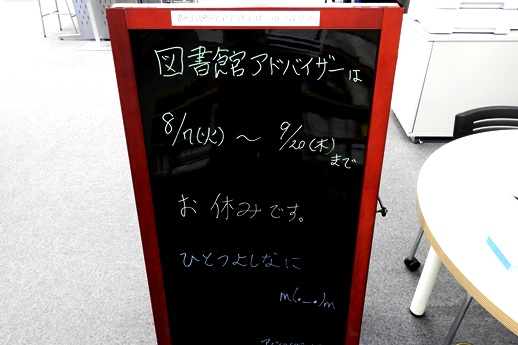 図書館アドバイザーは
8/7(火) 〜 9/20(木)
まで
お休みです。
ひとつよしなに
m(._.)m